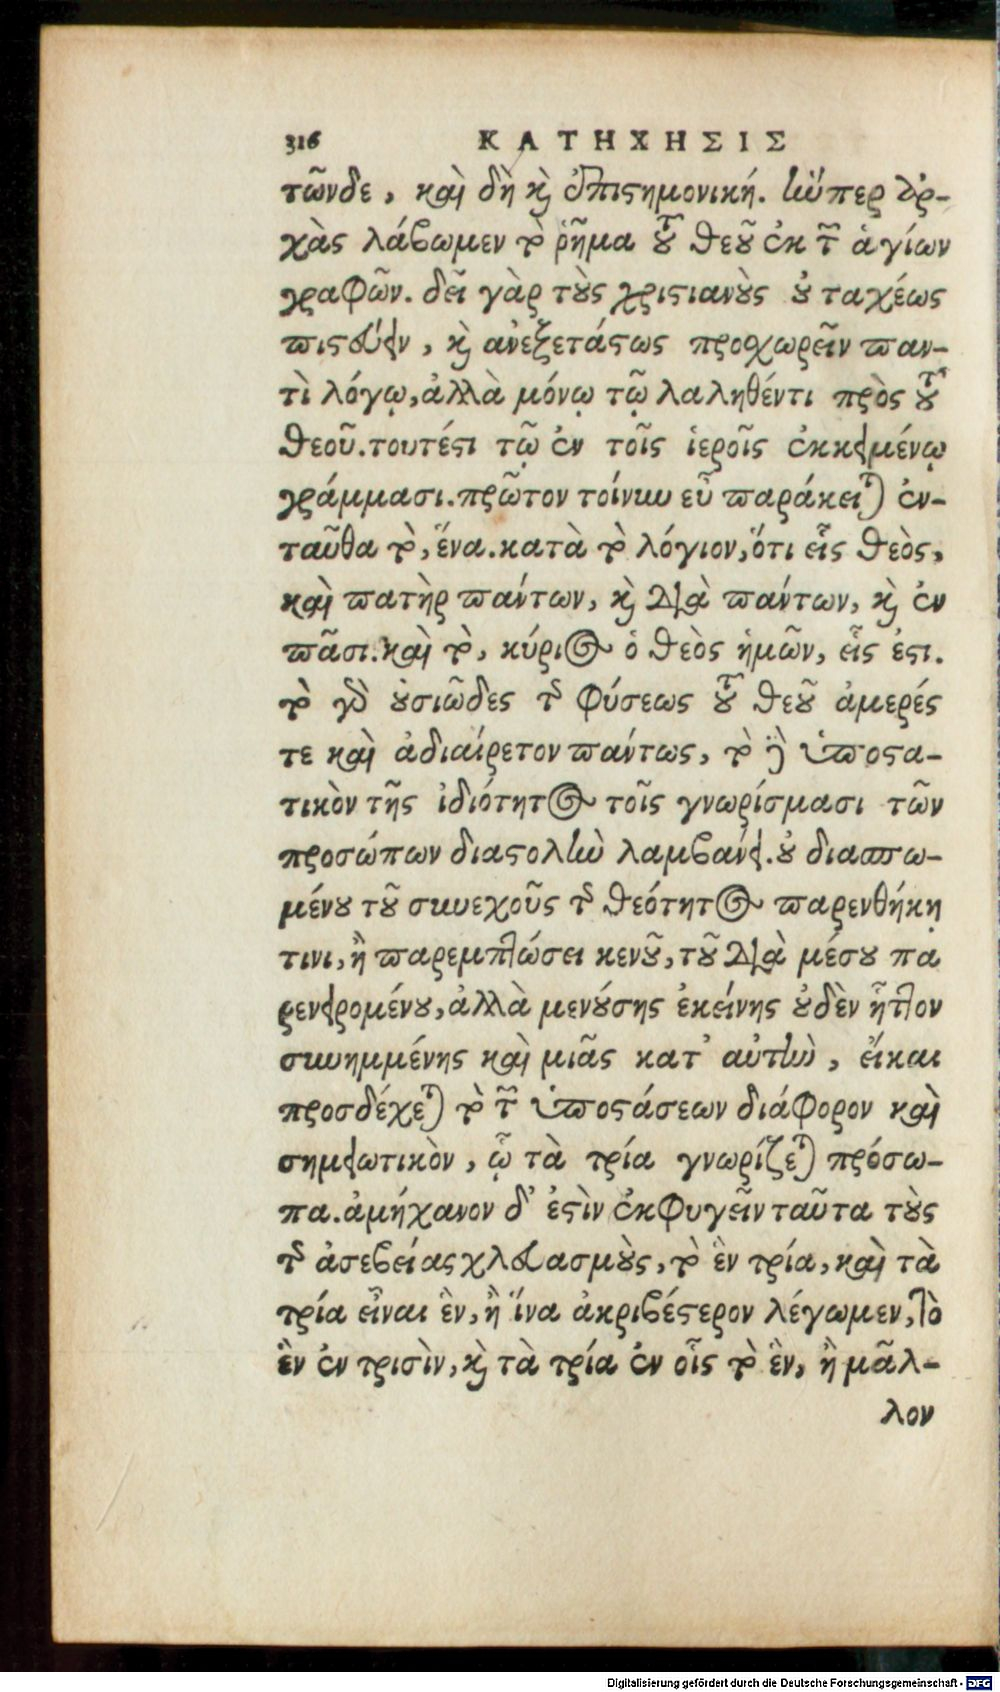 316 ΚΑΤΗΧΗΣΙΣ
τῶνδε, καὶ δὴ κỳ ἐπιστημονική. ἥνπερ ἀρ-
χὰς λάβωμεν τὸ ῥῆμα τοῦ θεοῦ ἐκ τῶν ἁγίων
γραφῶν. δεῖ γὰρ τοὺς χριστιανοὺς οὐ ταχέως
πιστεύειν, καὶ ἀνεξετάστως προσχωρεῖν παν-
τὶ λόγῳ, ἀλλὰ μόνῳ τῷ λαληθέντι πρὸς τοῦ
θεοῦ. τουτέστι τῷ ἐν τοῖς ἱεροῖς ἐκκειμένῳ
γράμμασι. πρῶτον τοίνυν εὖ παράκειται ἐν-
ταῦθα τὸ, ἕνα. κατὰ τὸ λόγιον, ὅτι εἷς θεὸς,
καὶ πατὴρ πάντων, καὶ διὰ πάντων, καὶ ἐν
πᾶσι. καὶ τὸ, κύριος ὁ θεὸς ἡμῶν, εἷς ἐστι.
τὸ γὰρ οὐσιῶδες τῆς φύσεως τοῦ θεοῦ ἀμερές
τε καὶ ἀδιαίρετον πάντως, τὸ δὲ ὑποστα-
τικὸν τῆς ἰδιότητος τοῖς γνωρίσμασι τῶν
προσώπων διαστολὴν λαμβάνει. οὐ διασπω-
μένου τοῦ συνεχοῦς τῆς θεότητος παρενθήκῃ
τινι, ἢ παρεμπτώσει κενοῦ, τοῦ διὰ μέσου πα
ρενειρομένου, ἀλλὰ μενούσης ἐκείνης οὐδὲν ἧττον
συνημμένης καὶ μιᾶς κατ' αὐτὴν, εἴ και
προσδέχεται τὸ τῶν ὑποστάσεων διάφορον καὶ
σημειωτικὸν, ᾧ τὰ τρία γνωρίζεται πρόσω-
πα. ἀμήχανον δ' ἐστὶν ἐκφυγεῖν ταῦτα τοὺς
τῆς ἀσεβείας χλευασμοὺς, τὸ ἓν τρία, καὶ τὰ
τρία εἶναι ἓν, ἢ ἵνα ἀκριβέστερον λέγωμεν, τὸ
ἓν ἐν τρισὶν, καὶ τὰ τρία ἐν οἷς τὸ ἓν, ἢ μᾶλ-
λον
Digitalisierung gefördert durch die Deutsche Forschungsgemeinschaft - DFG